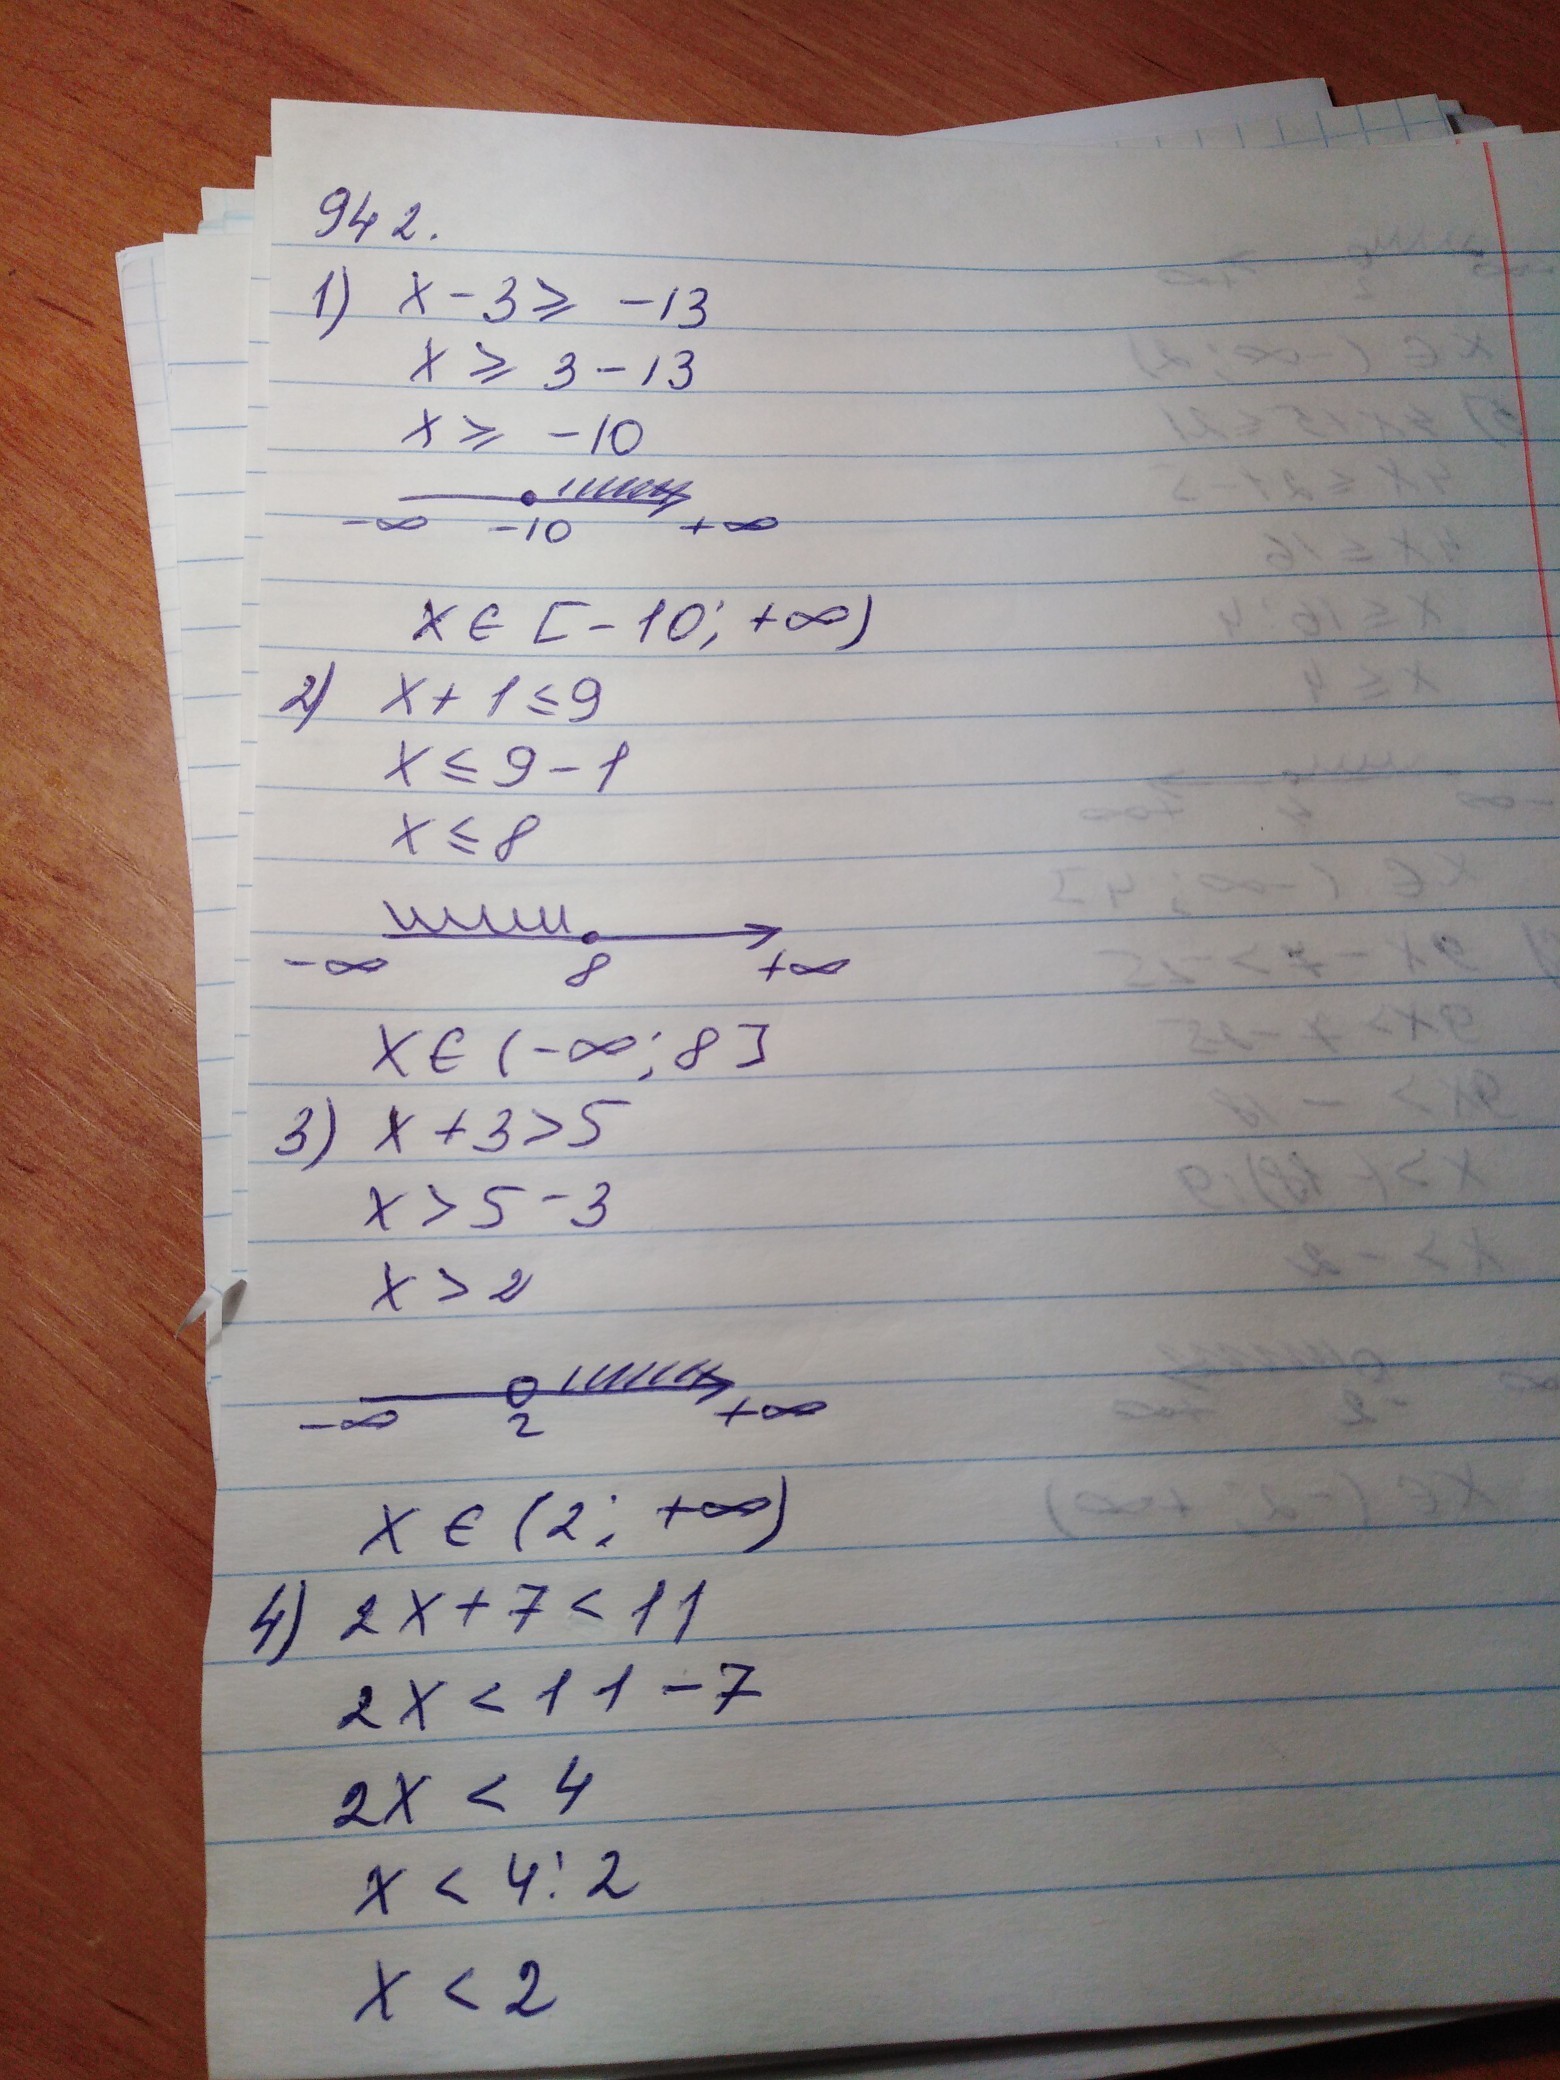 942.
1) x - 3 ⩾ -13
x ⩾ 3 - 13
x ⩾ -10
-∞ -10 +∞
x ∈ [-10; +∞)
2) x + 1 ⩽ 9
x ⩽ 9 - 1
x ⩽ 8
-∞ 8 +∞
x ∈ (-∞; 8]
3) x + 3 > 5
x > 5 - 3
x > 2
-∞ 2 +∞
x ∈ (2; +∞)
4) 2x + 7 < 11
2x < 11 - 7
2x < 4
x < 4:2
x < 2